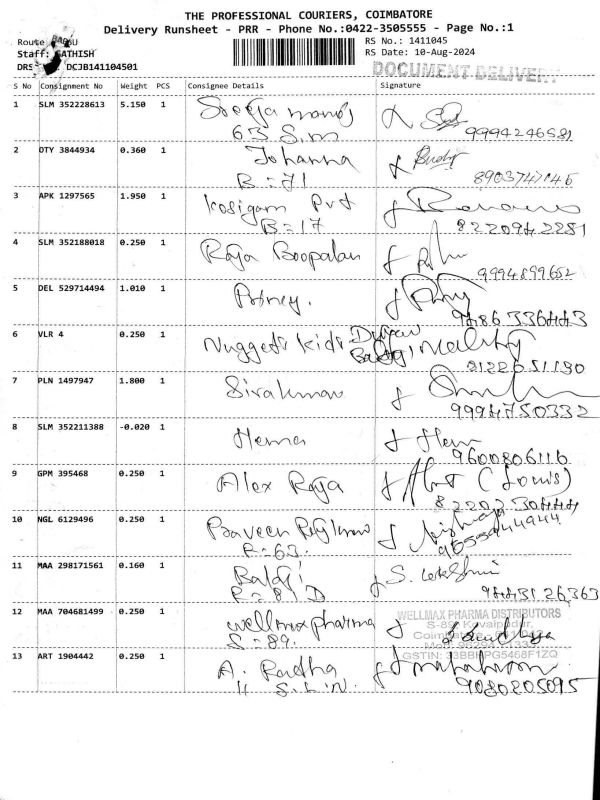 THE PROFESSIONAL COURIERS, COIMBATORE
Delivery Runsheet - PRR - Phone No.:0422-3505555 - Page No.:1
Route
RS No.: 1411045
Staff: SATHISH
RS Date: 10-Aug-2024
DRS DCJB141104501
DOCUMENT DELIVERY
S No Consignment No Weight PCS Consignee Details Signature
1 SLM 352228613 5.150 1
63 S.m 9994246581
2 DTY 3844934 0.360 1 Johanna
B=71
3 APK 1297565 1.950 1 Kosigam Pvt
B=17 8220942281
4 SLM 352188018 0.250 1 Raja Boopalan
9994899652
5 DEL 529714494 1.010 1
9486336443
6 VLR 4 0.250 1 Nuggets kids
7 PLN 1497947 1.800 1 Sivakumar
9994750332
8 SLM 352211388 -0.020 1 Hema Hem
9600806116
9 GPM 395468 0.250 1 Alex Raja (Louis)
10 NGL 6129496 0.250 1 Praveen
R=63.
11 MAA 298171561 0.160 1 Balaji S.
12 MAA 704681499 0.250 1 wellmax pharma
S=89.
WELLMAX PHARMA DISTRIBUTORS
13 ART 1904442 0.250 1 A. Radha
11 S.L.N. 9080205095